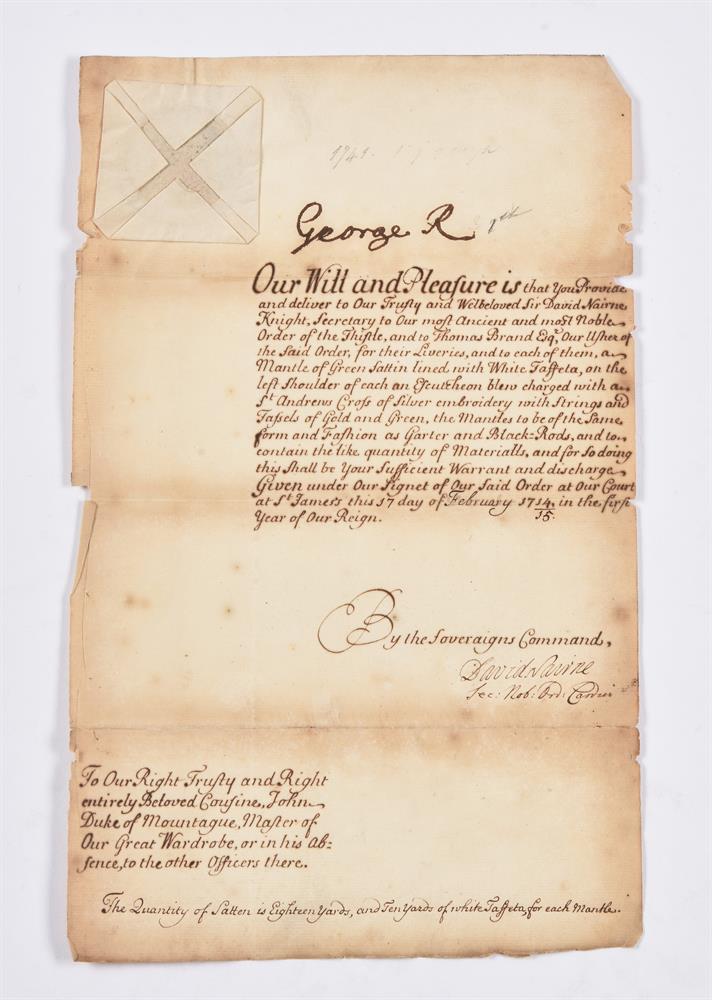 George R 1st
Our Will and Pleasure is that You Provide
and deliver to Our Trusty and Welbeloved Sir David Nairne
Knight, Secretary to Our most Ancient and most Noble
Order of the Thistle, and to Thomas Brand Esqr. Our Usher of
the Said Order, for their Liveries, and to each of them, a
Mantle of Green Sattin lined with White Taffeta, on the
left Shoulder of each an Escutcheon blew charged with a
St. Andrews Cross of Silver embroidery with Strings and
Tassels of Gold and Green, the Mantles to be of the Same
form and Fashion as Garter and Black-Rods, and to
contain the like quantity of Materialls, and for so doing
this Shall be Your Sufficient Warrant and discharge
Given under Our Signet of Our Said Order at Our Court
at St. James's this 17 day of February 1714/15. in the first
Year of Our Reign.
By the Soveraigns Command,
David Nairne
Sec: Nob: Ord: Cardui
To Our Right Trusty and Right
entirely Beloved Cousine, John
Duke of Mountague, Master of
Our Great Wardrobe, or in his Ab=
sence, to the other Officers there.
The Quantity of Satten is Eighteen Yards, and Ten Yards of white Taffeta, for each Mantle.